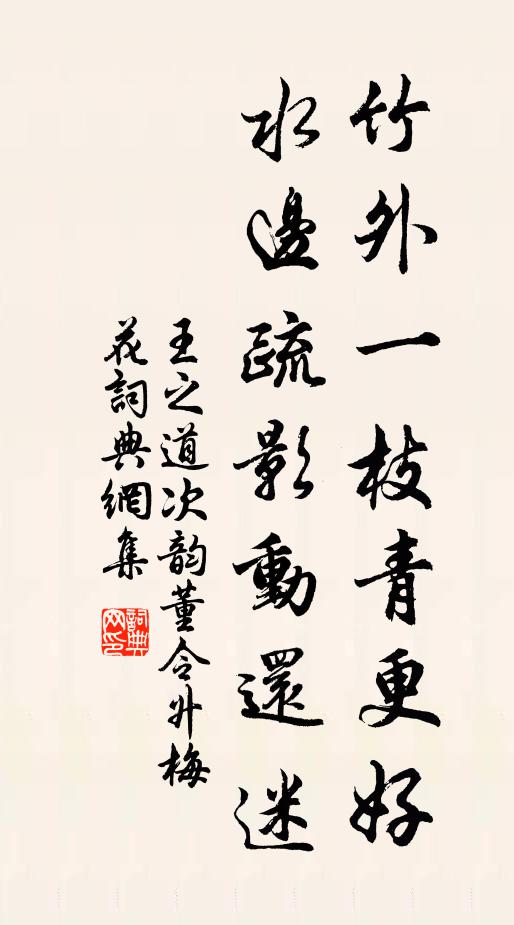 竹外一枝青更好
水邊疏影動還迷
王之道次韵董令升梅
花詞典網集
詞典網印